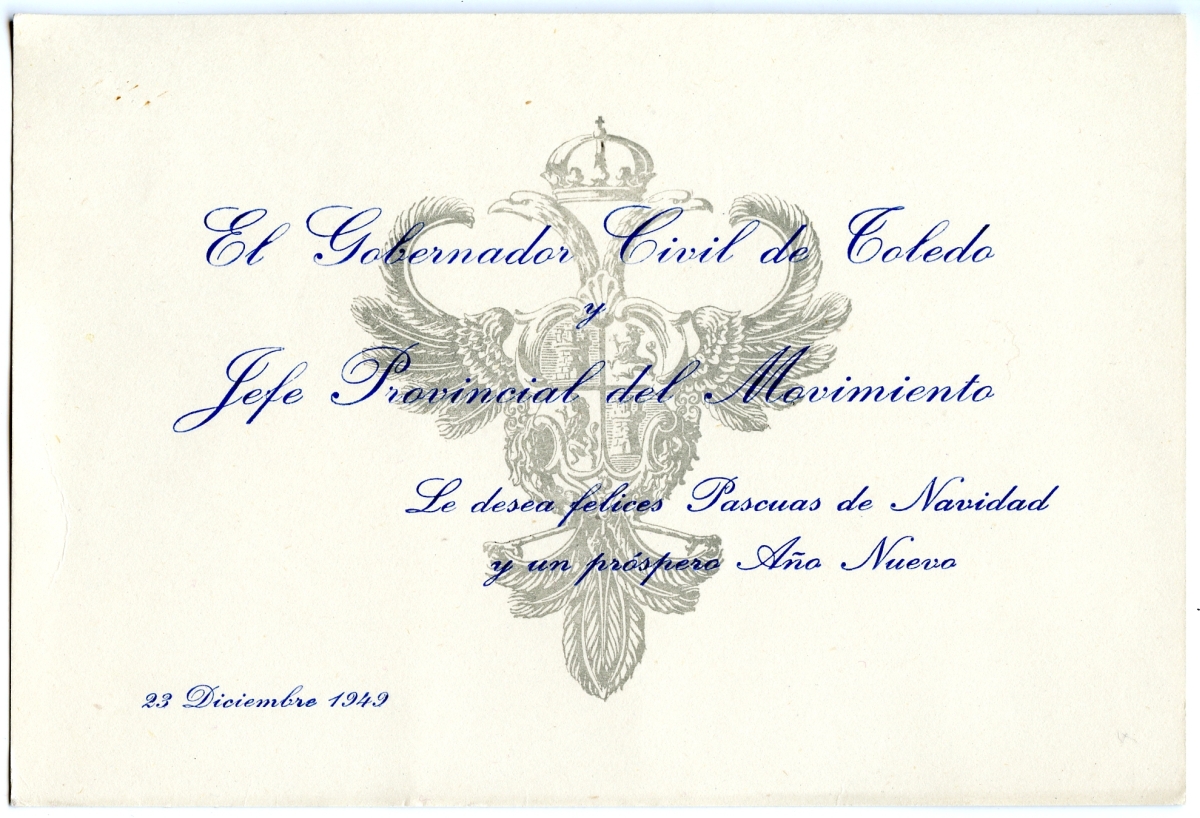 El Gobernador Civil de Toledo
y
Jefe Provincial del Movimiento
Le desea felices Pascuas de Navidad
y un próspero Año Nuevo
23 Diciembre 1949